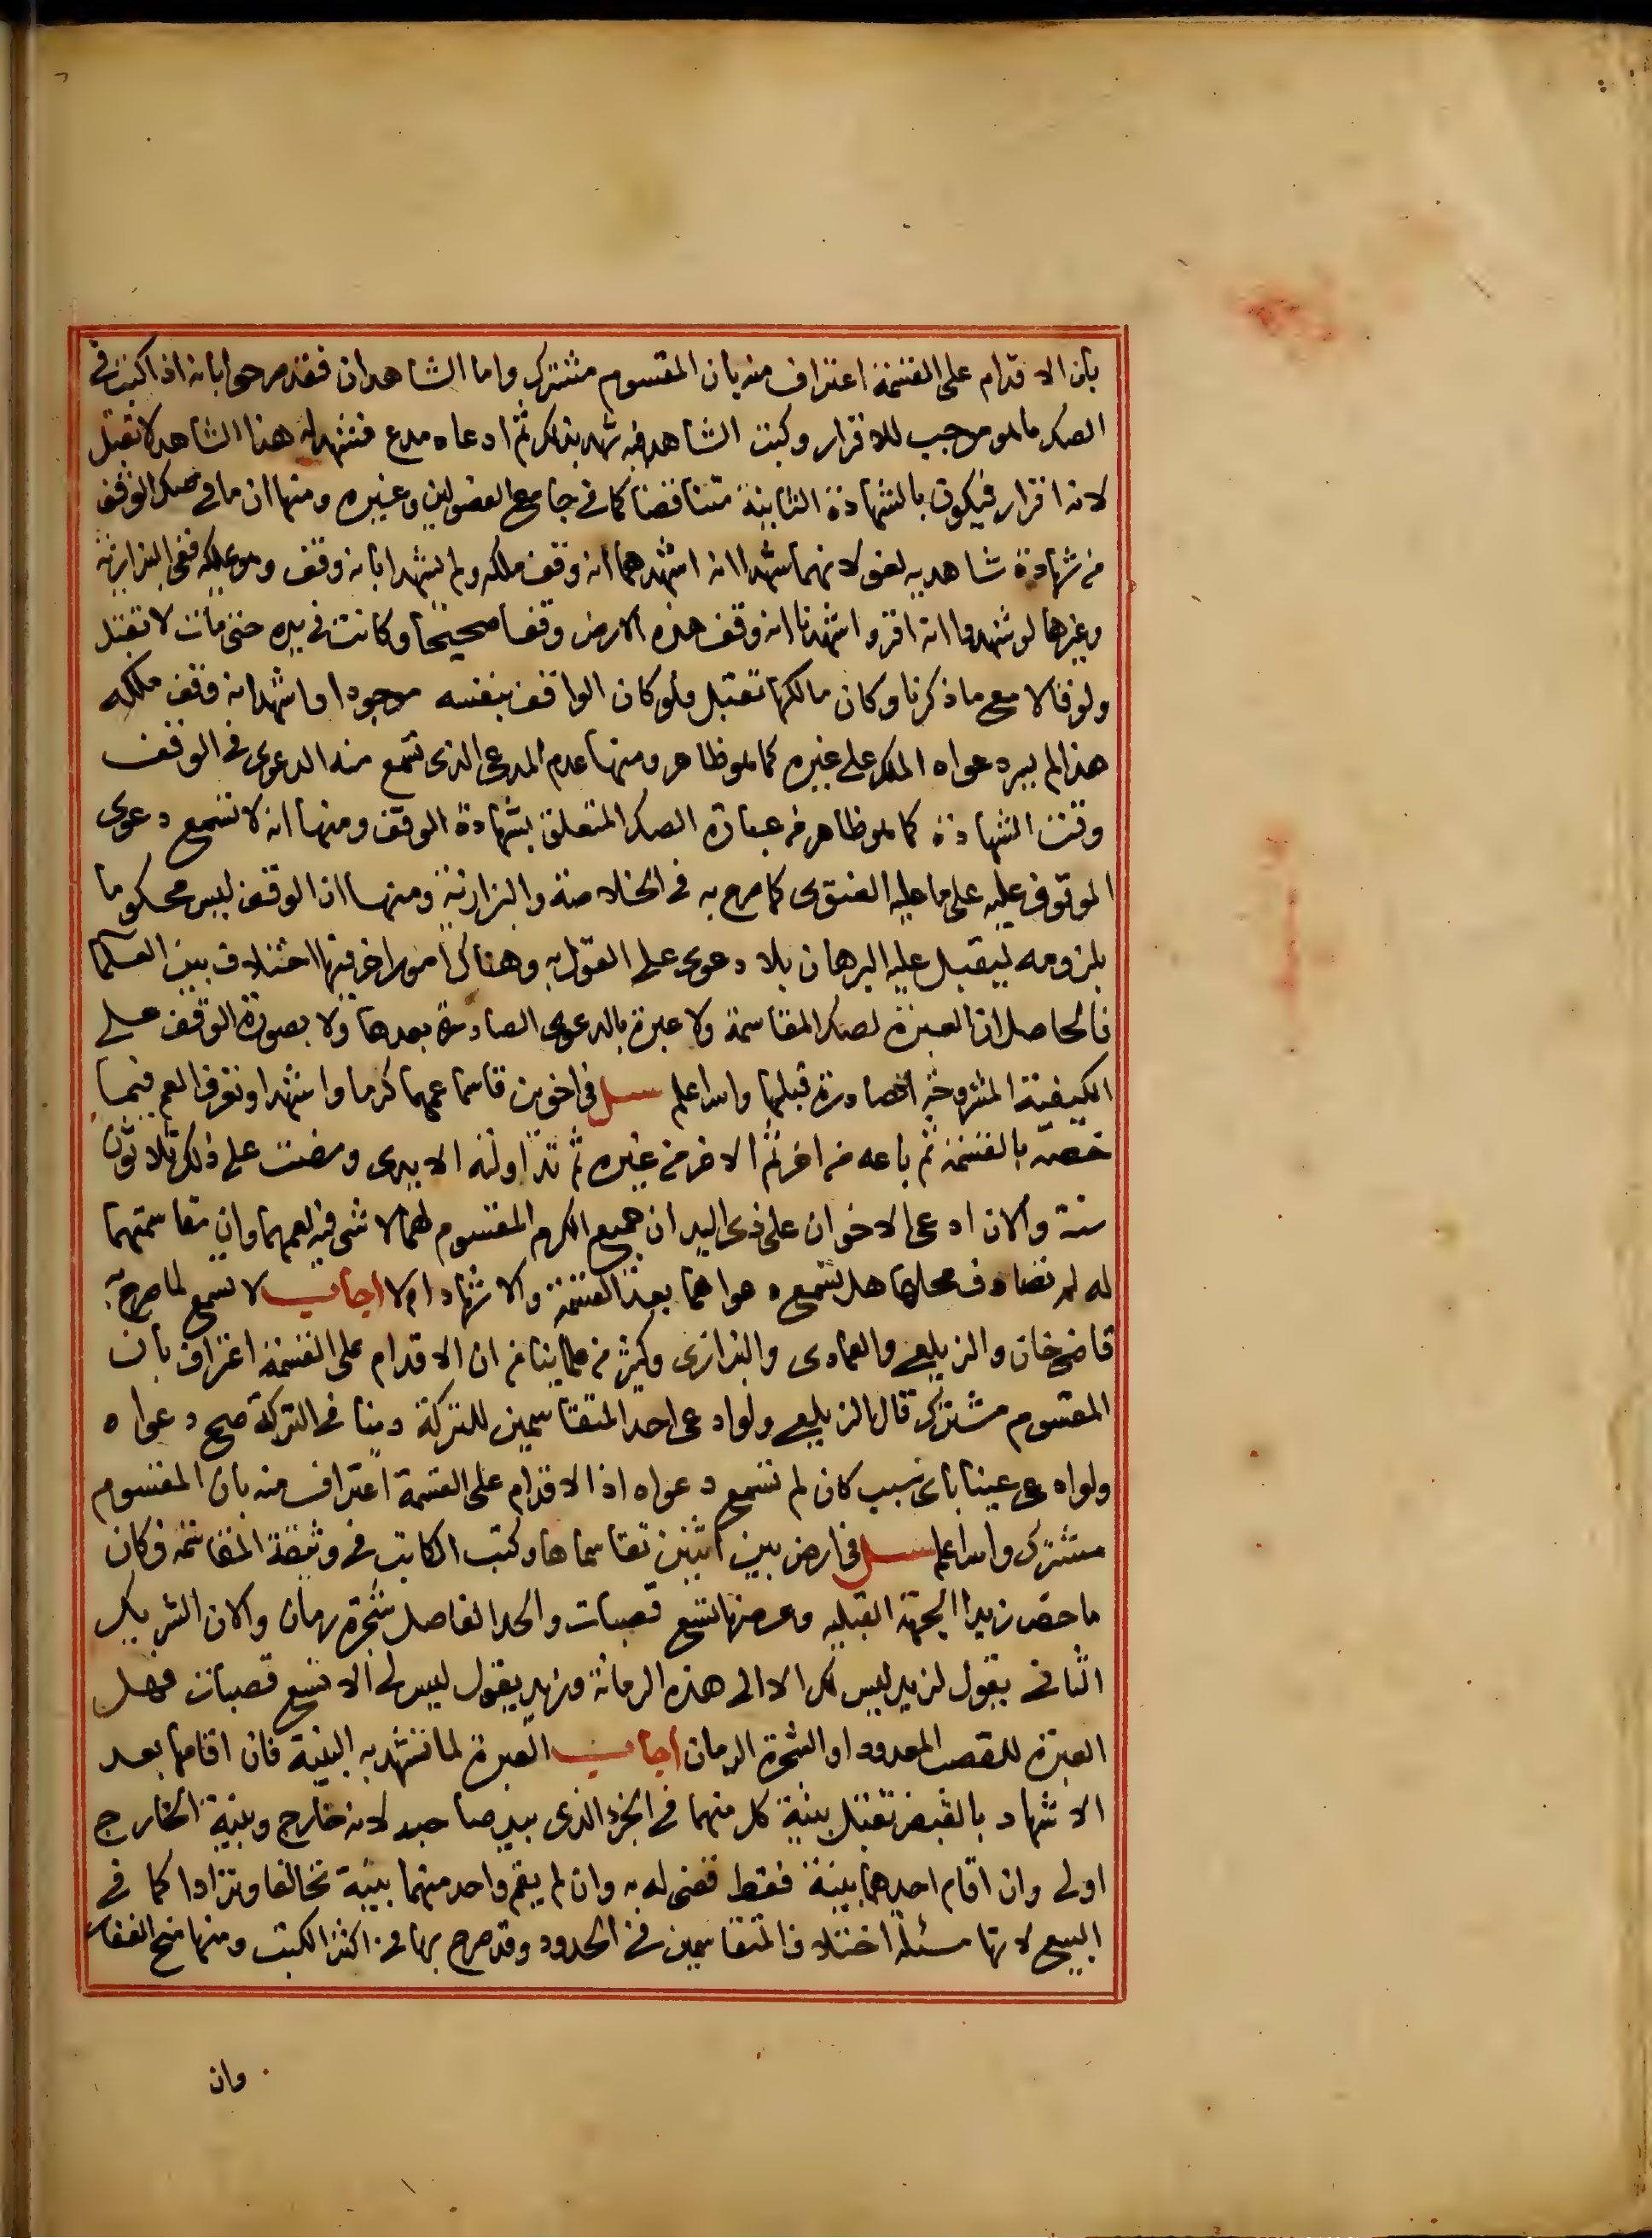 بان الاقدام على القسمة اعتراف منه بان المقسوم مشترك واما الشاهدان فقد صرحوا بانه اذا كتب في
الصك ما هو موجب للاقرار وكتب الشاهد فيه شهد بذلك ثم ادعاه مدع فشهد له هذا الشاهد لا تقبل
لانه اقرار فيكون بالشهادة الثانية متناقضا كما في جامع الفصولين وغيره ومنها ان ما في صك الوقف
من شهادة شاهديه لغو لانهما شهدا انه اشهدهما انه وقف ملكه ولم يشهدا بانه وقف وهو يملكه ففي البزازية
وغيرها لو شهدوا انه اقر واشهدنا انه وقف هذه الارض وقفا صحيحا وكانت في يده حتى مات لا تقبل
ولو قالا مع ما ذكرنا وكان مالكها تقبل ولو كان الواقف بنفسه موجودا واشهد انه وقف ملكه
هذا لم يبرد عواه الملك على غيره كما هو ظاهر ومنها عدم المدعي الذي تسمع منه الدعوى في الوقف
وقت الشهادة كما هو ظاهر من عبارة الصك المتعلق بشهادة الوقف ومنها انه لا تسمع دعوى
الموقوف عليه على ما عليه الفتوى كما صرح به في الخلاصة والبزازية ومنها ان الوقف ليس محكوما
بلزومه ليقبل عليه البرهان بلا دعوى على القول به وهناك امور اخر فيها اختلاف بين العلما
فالحاصل ان العبرة لصك المقاسمة ولا عبرة بالدعوى الصادرة بعدها ولا بصورة الوقف على
الكيفية المشروحة الصادرة قبلها والله اعلم سئل في اخوين قاسما عمهما كرما واشهدا وتصرف العم فيما
خصه بالقسمة ثم باعه من اخر ثم الاخر من غيره ثم تداولته الايدي ومضت على ذلك ثلاثون
سنة والان ادعى الاخوان على ذي اليد ان جميع الكرم المقسوم لهما لا شي فيه لعمهما وان مقاسمتهما
له لم تصادف محلها هل تسمع دعواهما بعد القسمة والاشهاد ام لا اجاب لا تسمع لما صرح به
قاضي خان والزيلعي والعمادي والبزازي وكثير من علمائنا من ان الاقدام على القسمة اعتراف بان
المقسوم مشترك قال الزيلعي ولو ادعى احد المتقاسمين للتركة دينا في التركة صح دعواه
ولو ادعى عينا باي سبب كان لم تسمع دعواه اذ الاقدام على القسمة اعتراف منه بان المقسوم
مشترك والله اعلم سئل في ارض بين اثنين تقاسماها وكتب الكاتب في وثيقة المقاسمة وكان
ما خص زيدا الجهة القبلية وعرضها تسع قصبات والحد الفاصل شجرة رمان والان الشريك
الثاني يقول لزيد ليس لك الا الى هذه الرمانة وزيد يقول ليس لي الا تسع قصبات فهل
العبرة للقصب المعدود او الشجرة الرمان اجاب العبرة لما تشهد به البينة فان اقامها بعد
الاشهاد بالقبض تقبل بينة كل منهما في الجزء الذي بيد صاحبه لانه خارج وبينة الخارج
اولى وان اقام احدهما بينة فقط قضى له به وان لم يقم واحد منهما بينة تحالفا وترادا كما في
البيع لانها مسئلة اختلاف المتقاسمين في الحدود وقد صرح بها في اكثر الكتب ومنها منح الغفار
وان